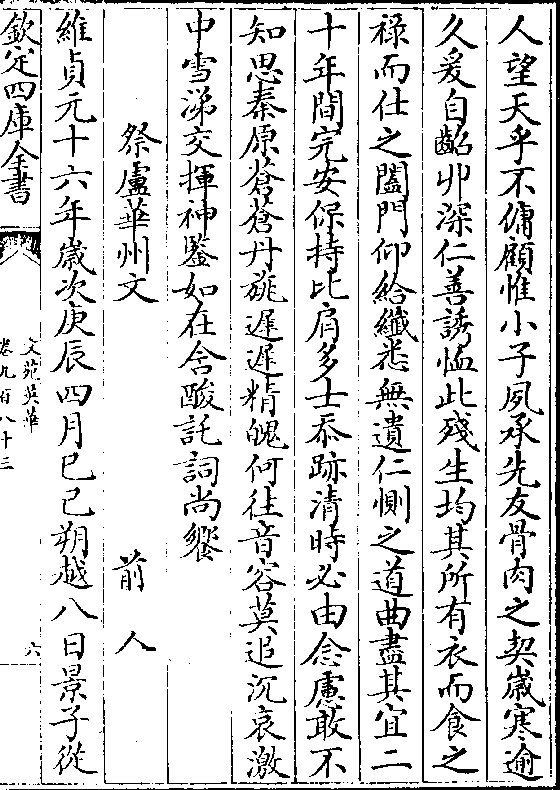 人望天乎不傭顧惟小子夙承先友骨肉之契嵗寒逾
久爰自齠丱深仁善誘恤此殘生均其所有衣而食之
禄而仕之闔門仰給纖悉無遺仁惻之道曲盡其宜二
十年間完安保持比肩多士忝跡清時必由念慮敢不
知思秦原蒼蒼丹旐遲遲精魄何往音容莫追沉哀激
中雪涕交揮神鑒如在含酸託詞尚饗
祭盧華州文 前人
維貞元十六年嵗次庚辰四月已己朔越八日景子從
欽定四庫全書
文苑英華
卷九百八十三
六